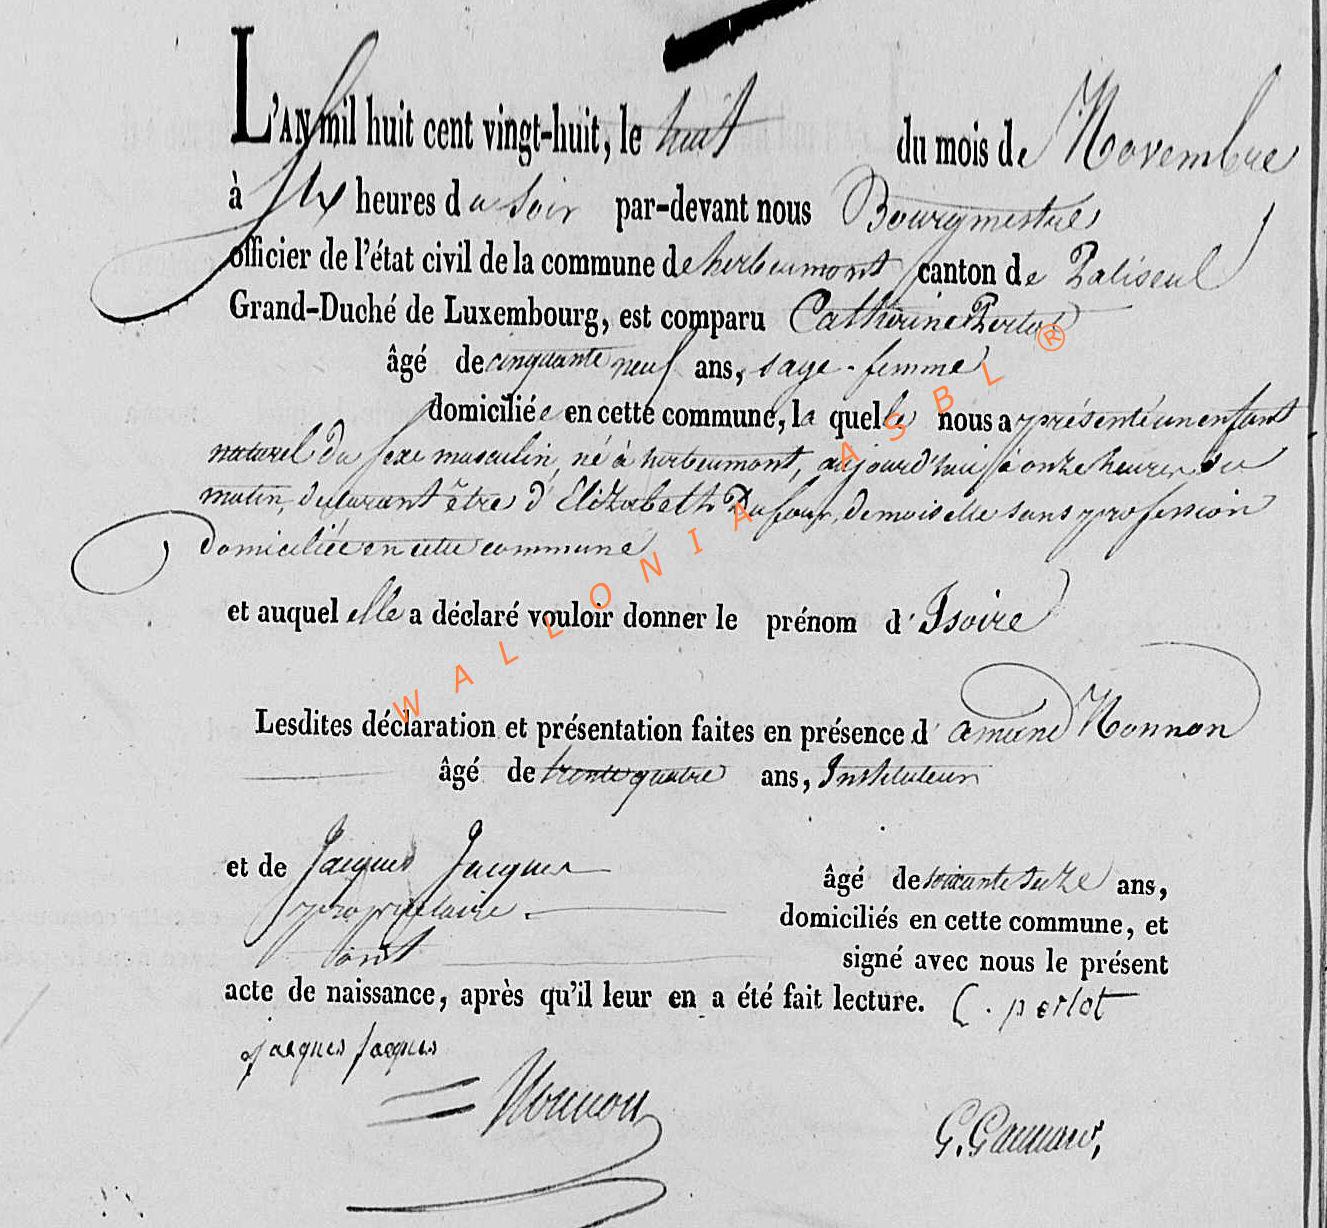 L'AN mil huit cent vingt-huit, le huit du mois de Novembre
à six heures du soir par-devant nous Bourgmestre
officier de l'état civil de la commune de herbeumont canton de Paliseul
Grand-Duché de Luxembourg, est comparu Catherine Perlot
âgé de cinquante neuf ans, sage-femme
domiciliée en cette commune, la quelle nous a présenté un enfant
naturel du sexe masculin, né à herbeumont, aujourd'hui à onze heures du
matin, déclarant être d'Elizabeth Dufour, demoiselle sans profession
domiciliée en cette commune
et auquel elle a déclaré vouloir donner le prénom d'Isoire
Lesdites déclaration et présentation faites en présence d' Nonnon
âgé de trente quatre ans, Instituteur
et de Jacques Jacques âgé de soixante ans,
propriétaire. domiciliés en cette commune, et
ont signé avec nous le présent
acte de naissance, après qu'il leur en a été fait lecture. C. perlot
jacques jacques
Nonnon
G.
WALLONIA ASBL ®